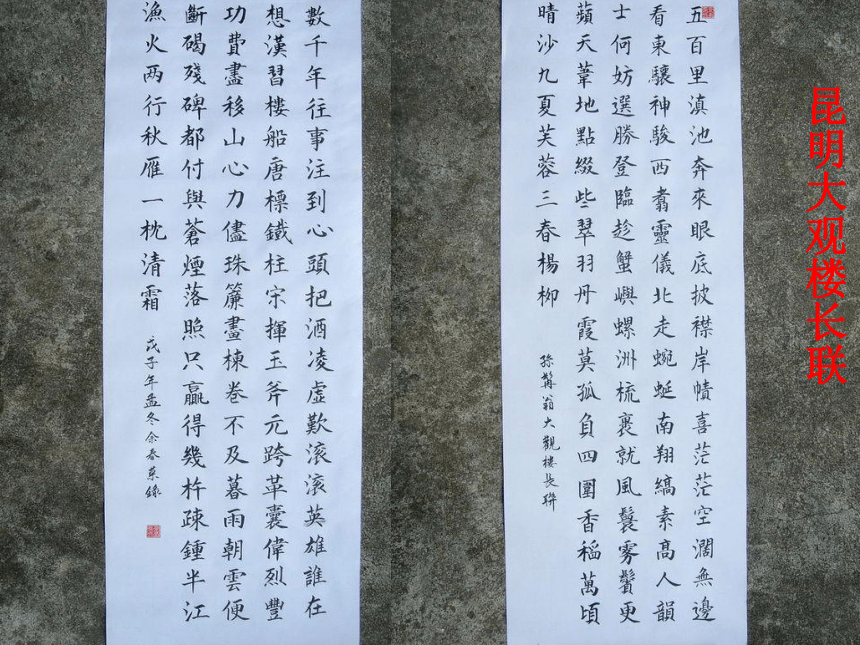 昆明大观楼长联
五百里滇池奔來眼底披襟岸幘喜茫茫空濶無邊
看東驤神駿西翥靈儀北走蜿蜒南翔縞素高人韻
士何妨選勝登臨趁蟹嶼螺洲梳裹就風鬟霧鬢更
蘋天葦地點綴些翠羽丹霞莫孤負四圍香稻萬頃
晴沙九夏芙蓉三春楊柳
孫髯翁大觀樓長聯
數千年往事注到心頭把酒凌虛歎滚滚英雄誰在
想漢習樓船唐標鐵柱宋揮玉斧元跨革囊偉烈豐
功費盡移山心力儘珠簾畫棟卷不及暮雨朝雲便
斷碣殘碑都付與蒼煙落照只贏得幾杵疎鍾半江
漁火两行秋雁一枕清霜
戊子年孟冬余春錄